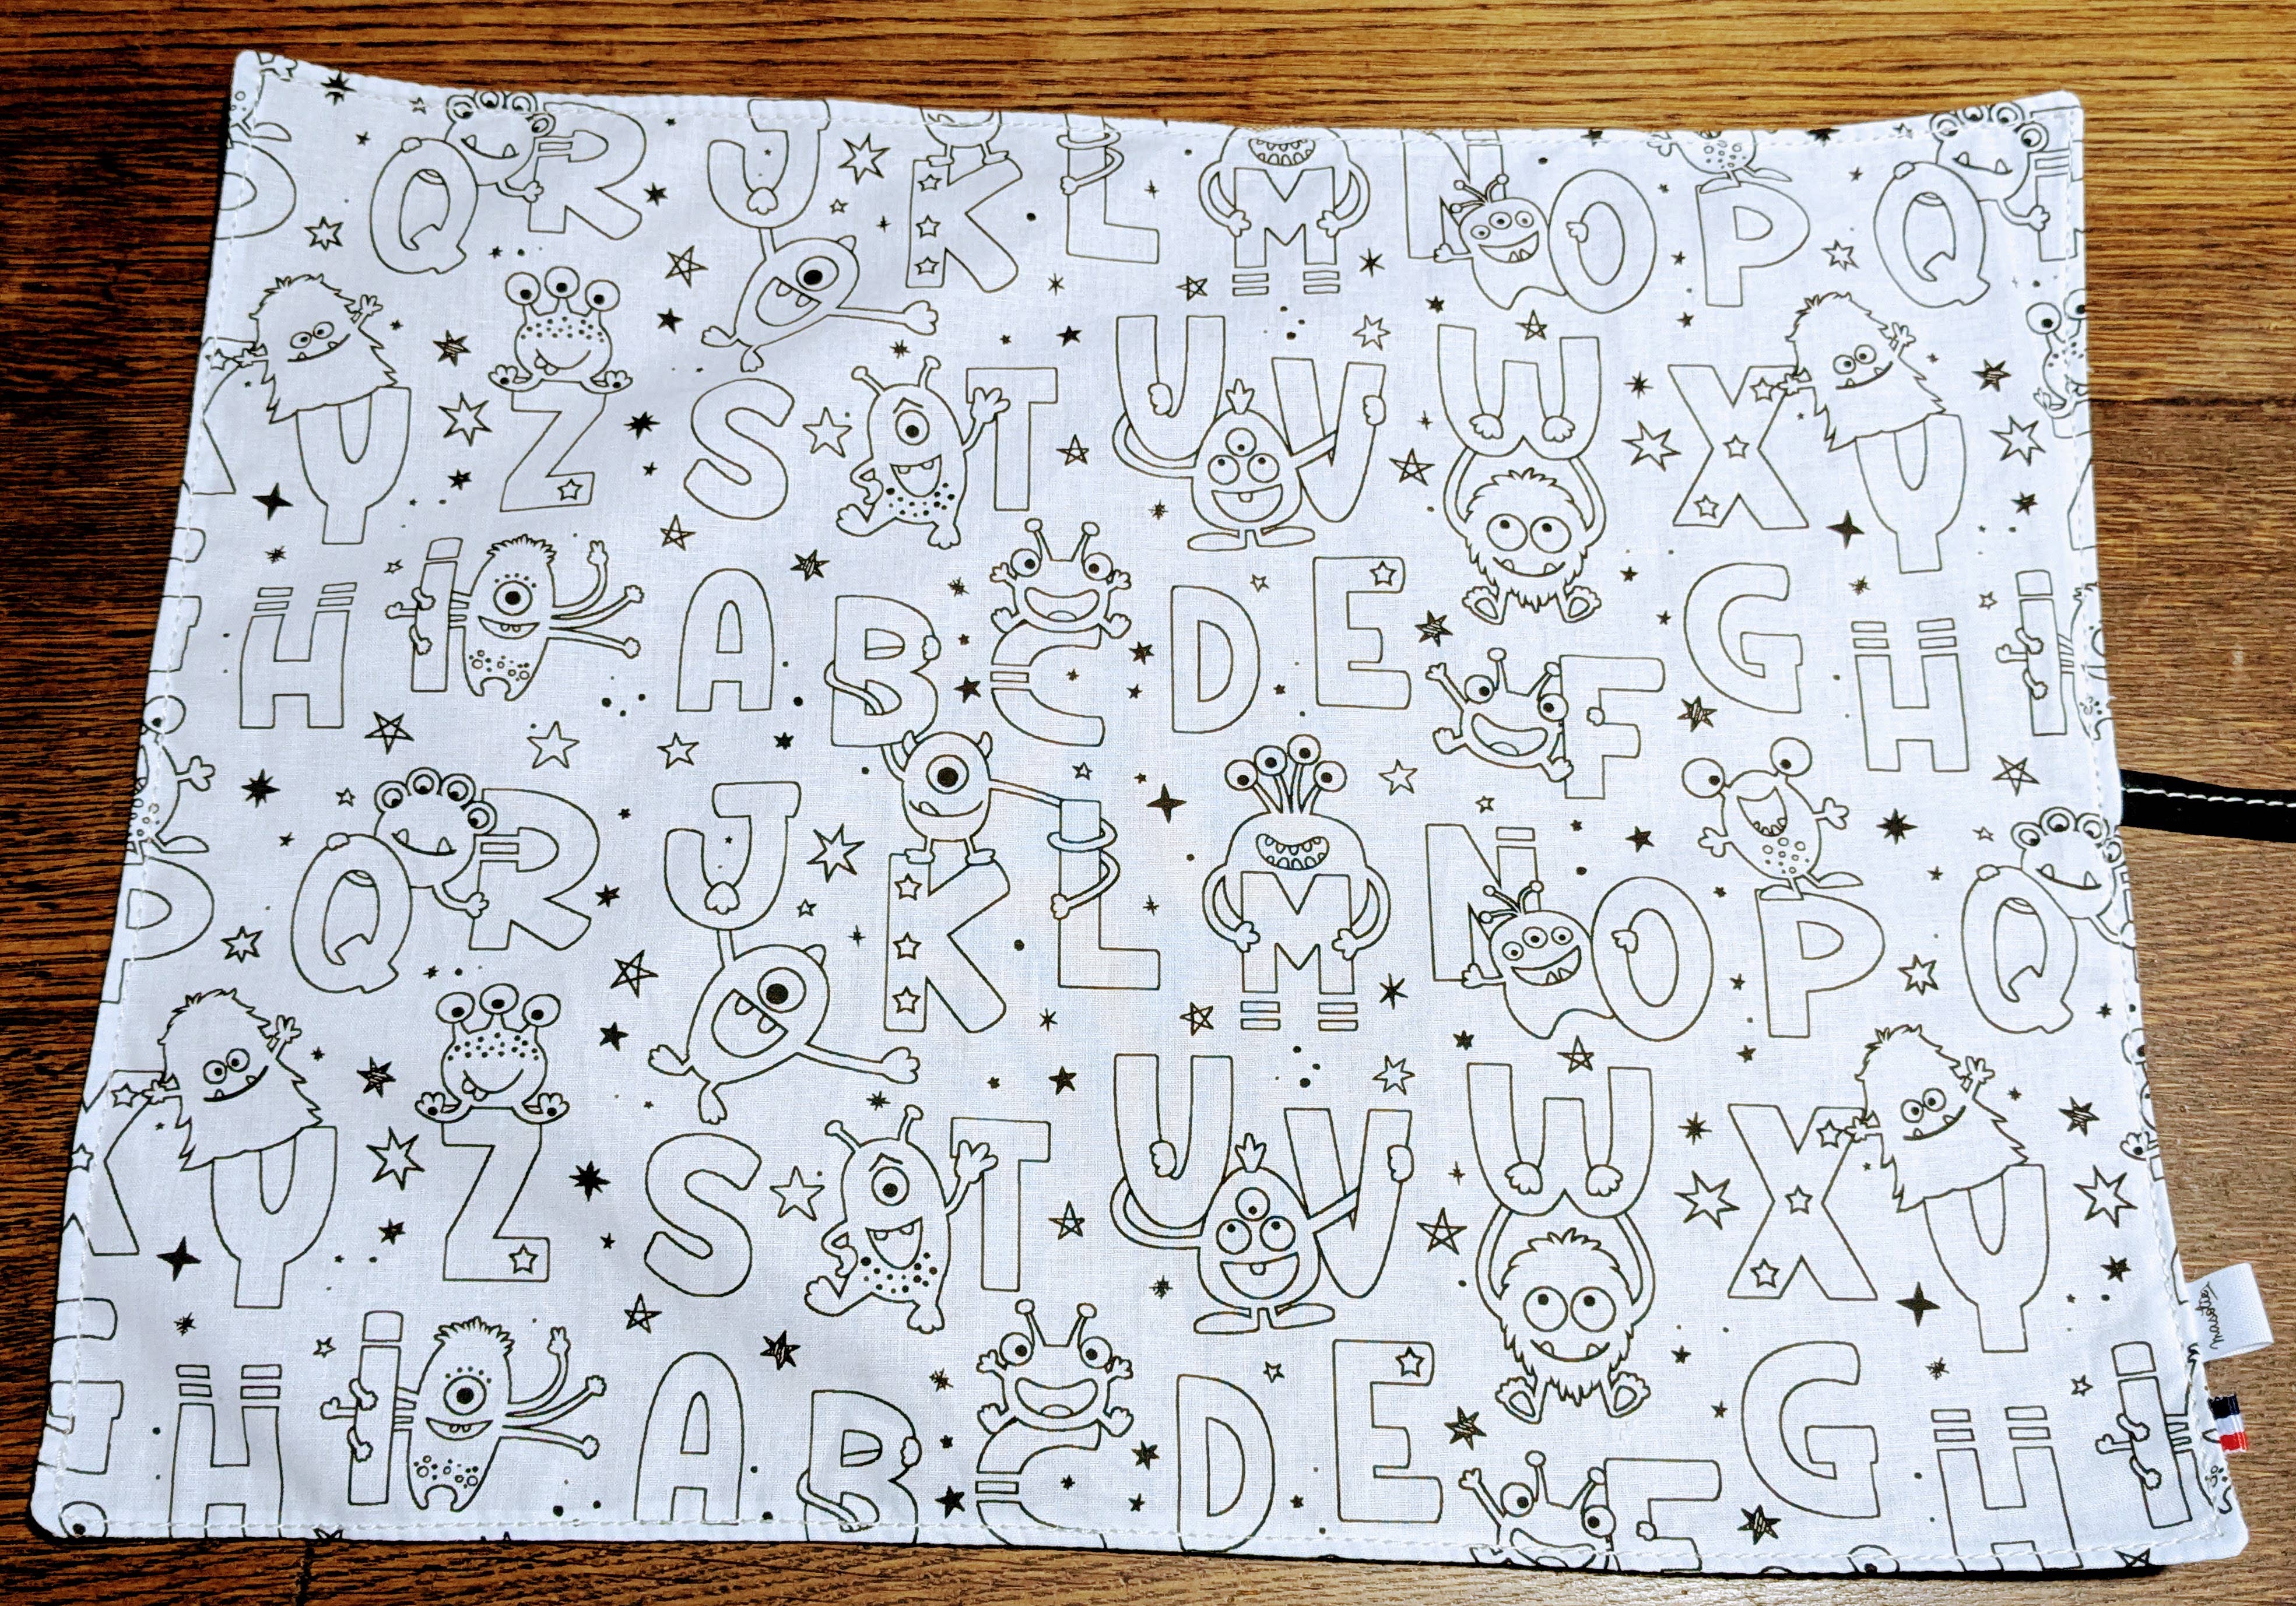 Q R J K L M N O P Q
Y Z S T U V W X Y
H I A B C D E F G H I
P Q R J K L M N O P Q
X Y Z S T U V W X Y
H I A B C D E F G H I